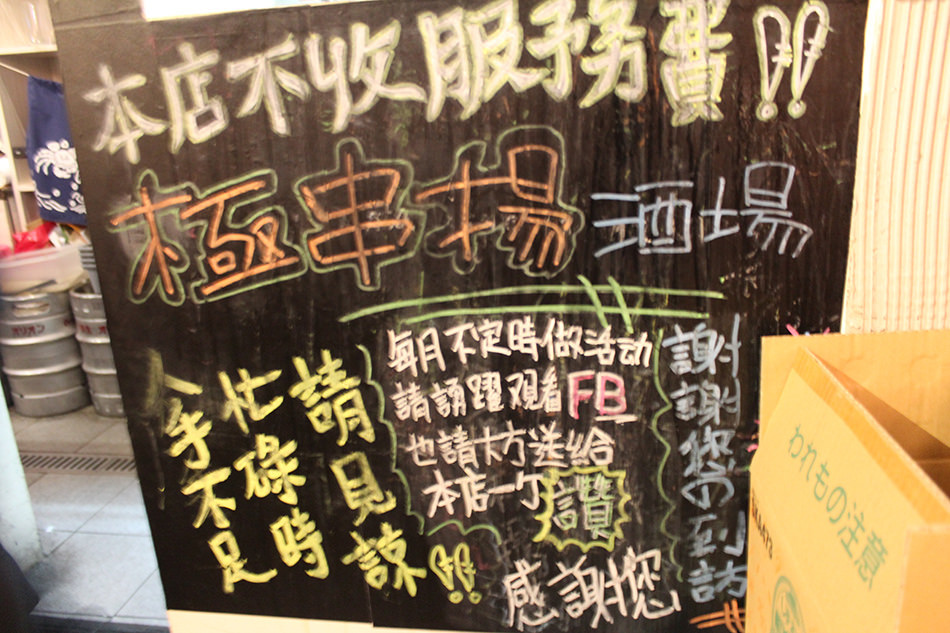 本店不收服務費!!
極串場 酒場
每月不定時做活動
請誘躍观看FB
也請大方送給
本店一个讚
感謝您
謝謝您の到訪
人手不足
忙碌時
請見諒!!
オリオン
われもの注意